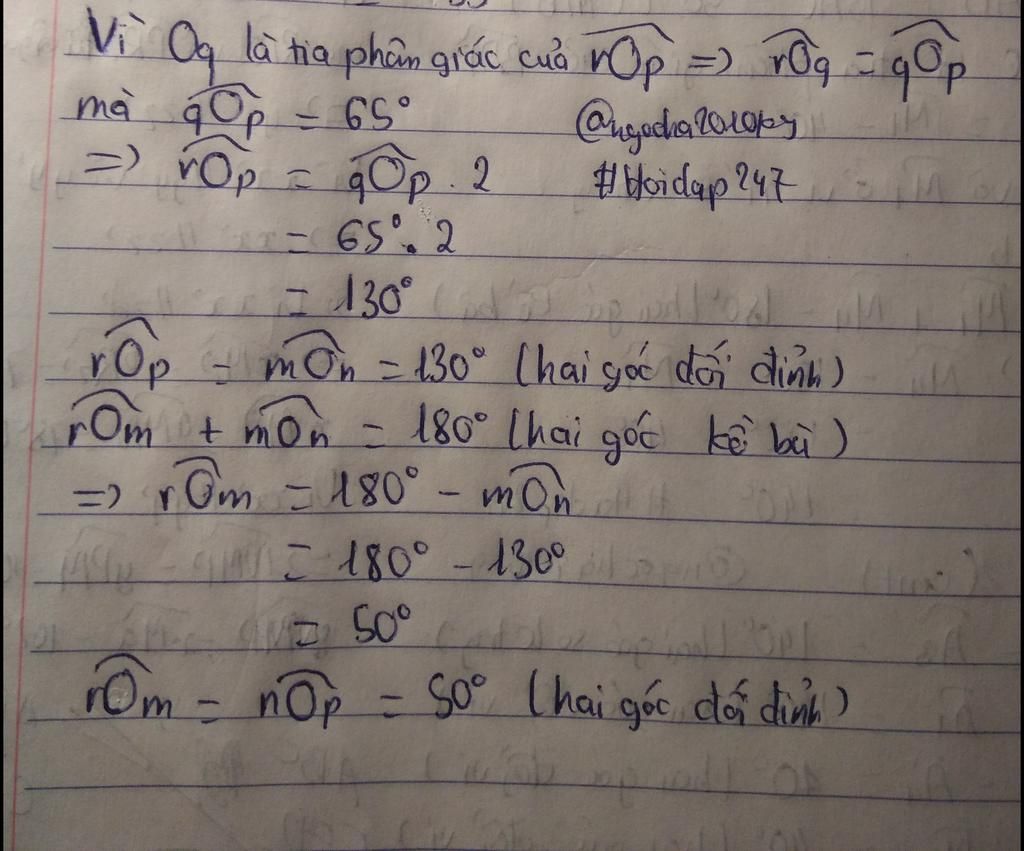 Vì Oq là tia phân giác của rOp => rOq = qOp
mà qOp = 65°
@ngocha2010ky
=> rOp = qOp . 2
#Hoidap247
= 65° . 2
= 130°
rOp = mOn = 130° (hai góc đối đỉnh)
rOm + mOn = 180° (hai góc kề bù)
=> rOm = 180° - mOn
= 180° - 130°
= 50°
rOm = nOp = 50° (hai góc đối đỉnh)